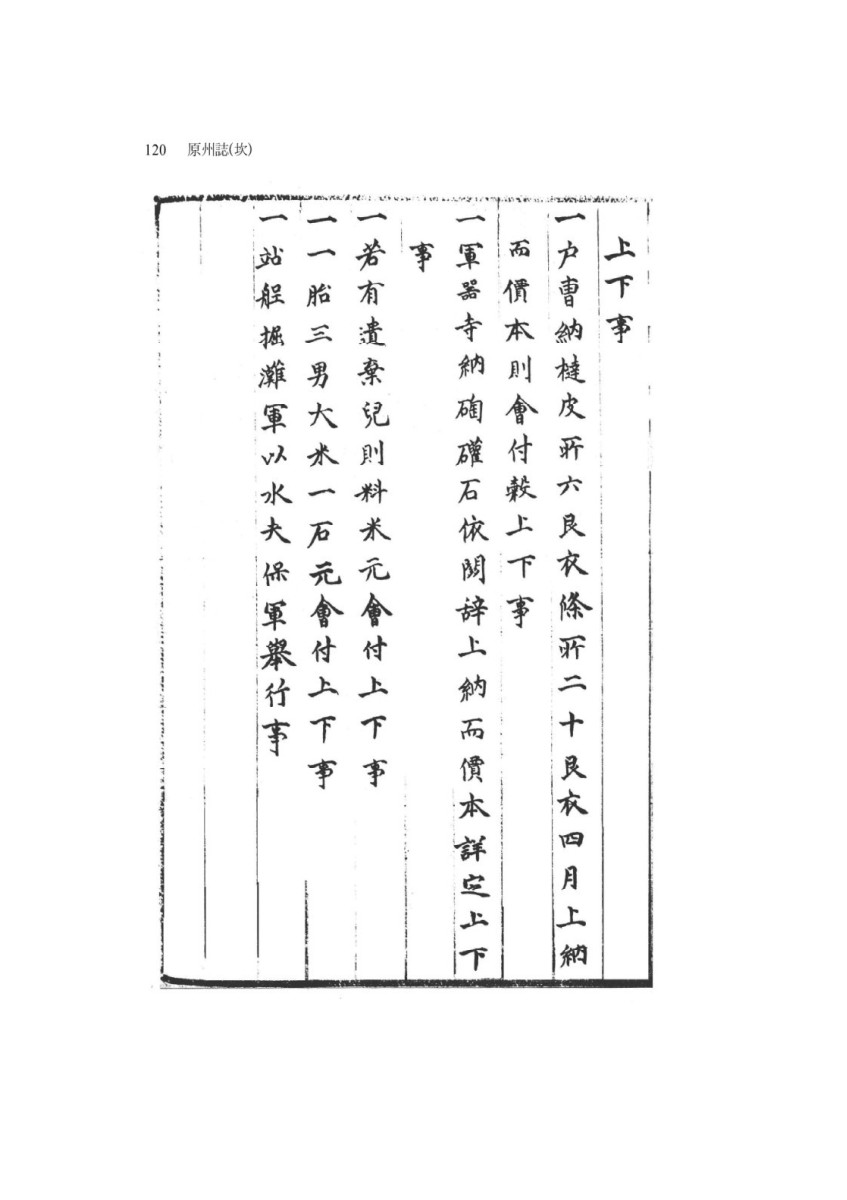 120 原州誌(坎)
上下事
一户曺納椵皮所六艮衣條所二十艮衣四月上納
而價本則會付穀上下事
一軍器寺納碯礶石依関辞上納而價本詳定上下
事
一若有遺棄兒則料米元會付上下事
一一胎三男大米一石元會付上下事
一站舡掘灘軍以水夫保軍舉行事